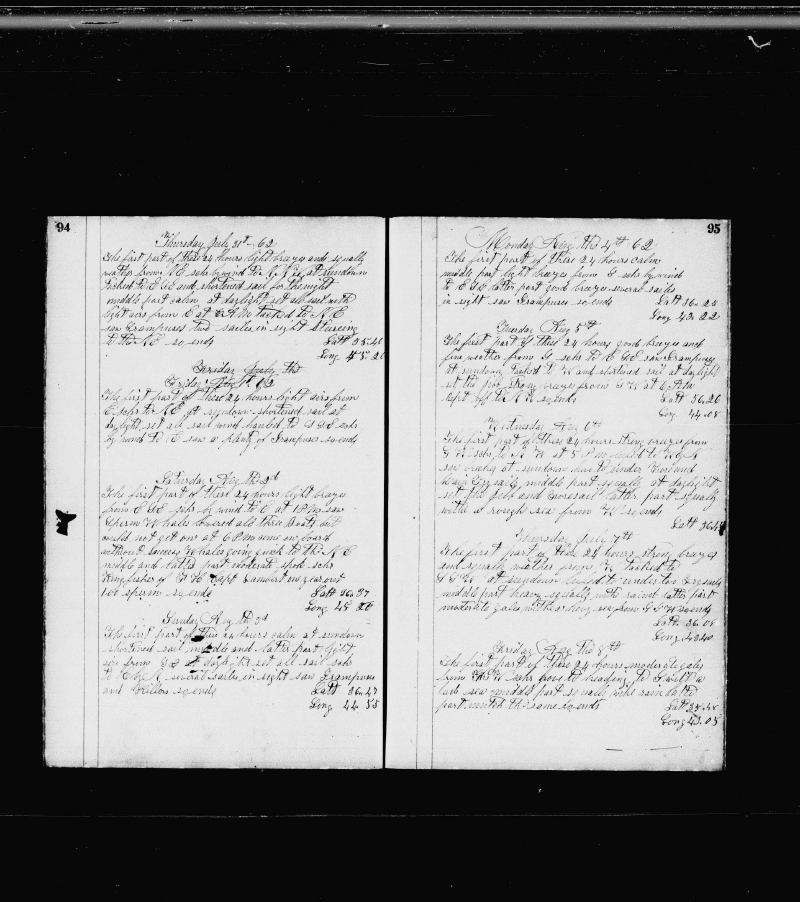 94
Thursday July 31st 62
The first part of these 24 hours light breezes and squally
weather from N E schr by wind to N N W at sundown
tacked to E S E and shortened sail for the night
middle part calm at daylight set all sail with
light airs from E at 6 A M tacked to N E
saw Grampuses two sailes in sight steering
to the N E so ends Latt 35.40
Long 45.20
Friday
Friday 62
The first part of these 24 hours light airs from
E schr to N E at sundown shortened sail at
daylight set all sail wind hauled to S S E schr
by wind to E saw a plenty of Grampuses so ends
Saturday Aug th 2d
The first part of these 24 hours light breezes
from E S E schr by wind to E at 1 P M saw
Sperm Whales lowered all three Boats but
could not get on at 6 P M came on board
without success Whales going quick to the N E
middle and latter part moderate spoke schr
Kingfisher of Capt Lambert one year out
108 sperm so ends Latt 36.27
Long 45 26
Sunday Aug th 3d
The first part of these 24 hours calm at sundown
shortened sail middle and latter part light
airs from at daylight set all sail schr
to E by N several sailes in sight saw Grampuses
and Killers so ends Latt 36.47
Long 44 53
95
Monday Aug the 4th 62
The first part of these 24 hours calm
middle part light breezes from S schr by wind
to E S E latter part good breeze several sailes
in sight saw Grampuses so ends Latt 36.24
Long 43.22
Tuesday Aug 5th
The first part of these 24 hours good breezes and
fine weather from S schr to E S E saw Grampuses
at sundown tacked to W and shortened sail at daylight
set the strong breezes from S W at 6 A M
kept off to N W so ends Latt 36.26
Long 44.08
Wednesday Aug 6th
The first part of these 24 hours strong breezes from
S W schr to N W at 5 P M to W by N
saw at sundown hove to under Foresail and
Main Trysail middle part squally at daylight
set the Jibb and Foresail latter part squally
with a rough sea from W so ends
Latt 36.4
Thursday July 7th
The first part of these 24 hours strong breezes
and squally weather from W tacked to
S S W at sundown luved to under two Trysails
middle part heavy squally with rain latter part
moderate gales with a heavy sea from S S W so ends
Latt 36.08
Long 43.40
Friday Aug the 8th
The first part of these 24 hours moderate gales
from W S W schr hove to heading to S with a
bad sea middle part squally with rain latter
part much the same so ends Latt 35.48
Long 43.05